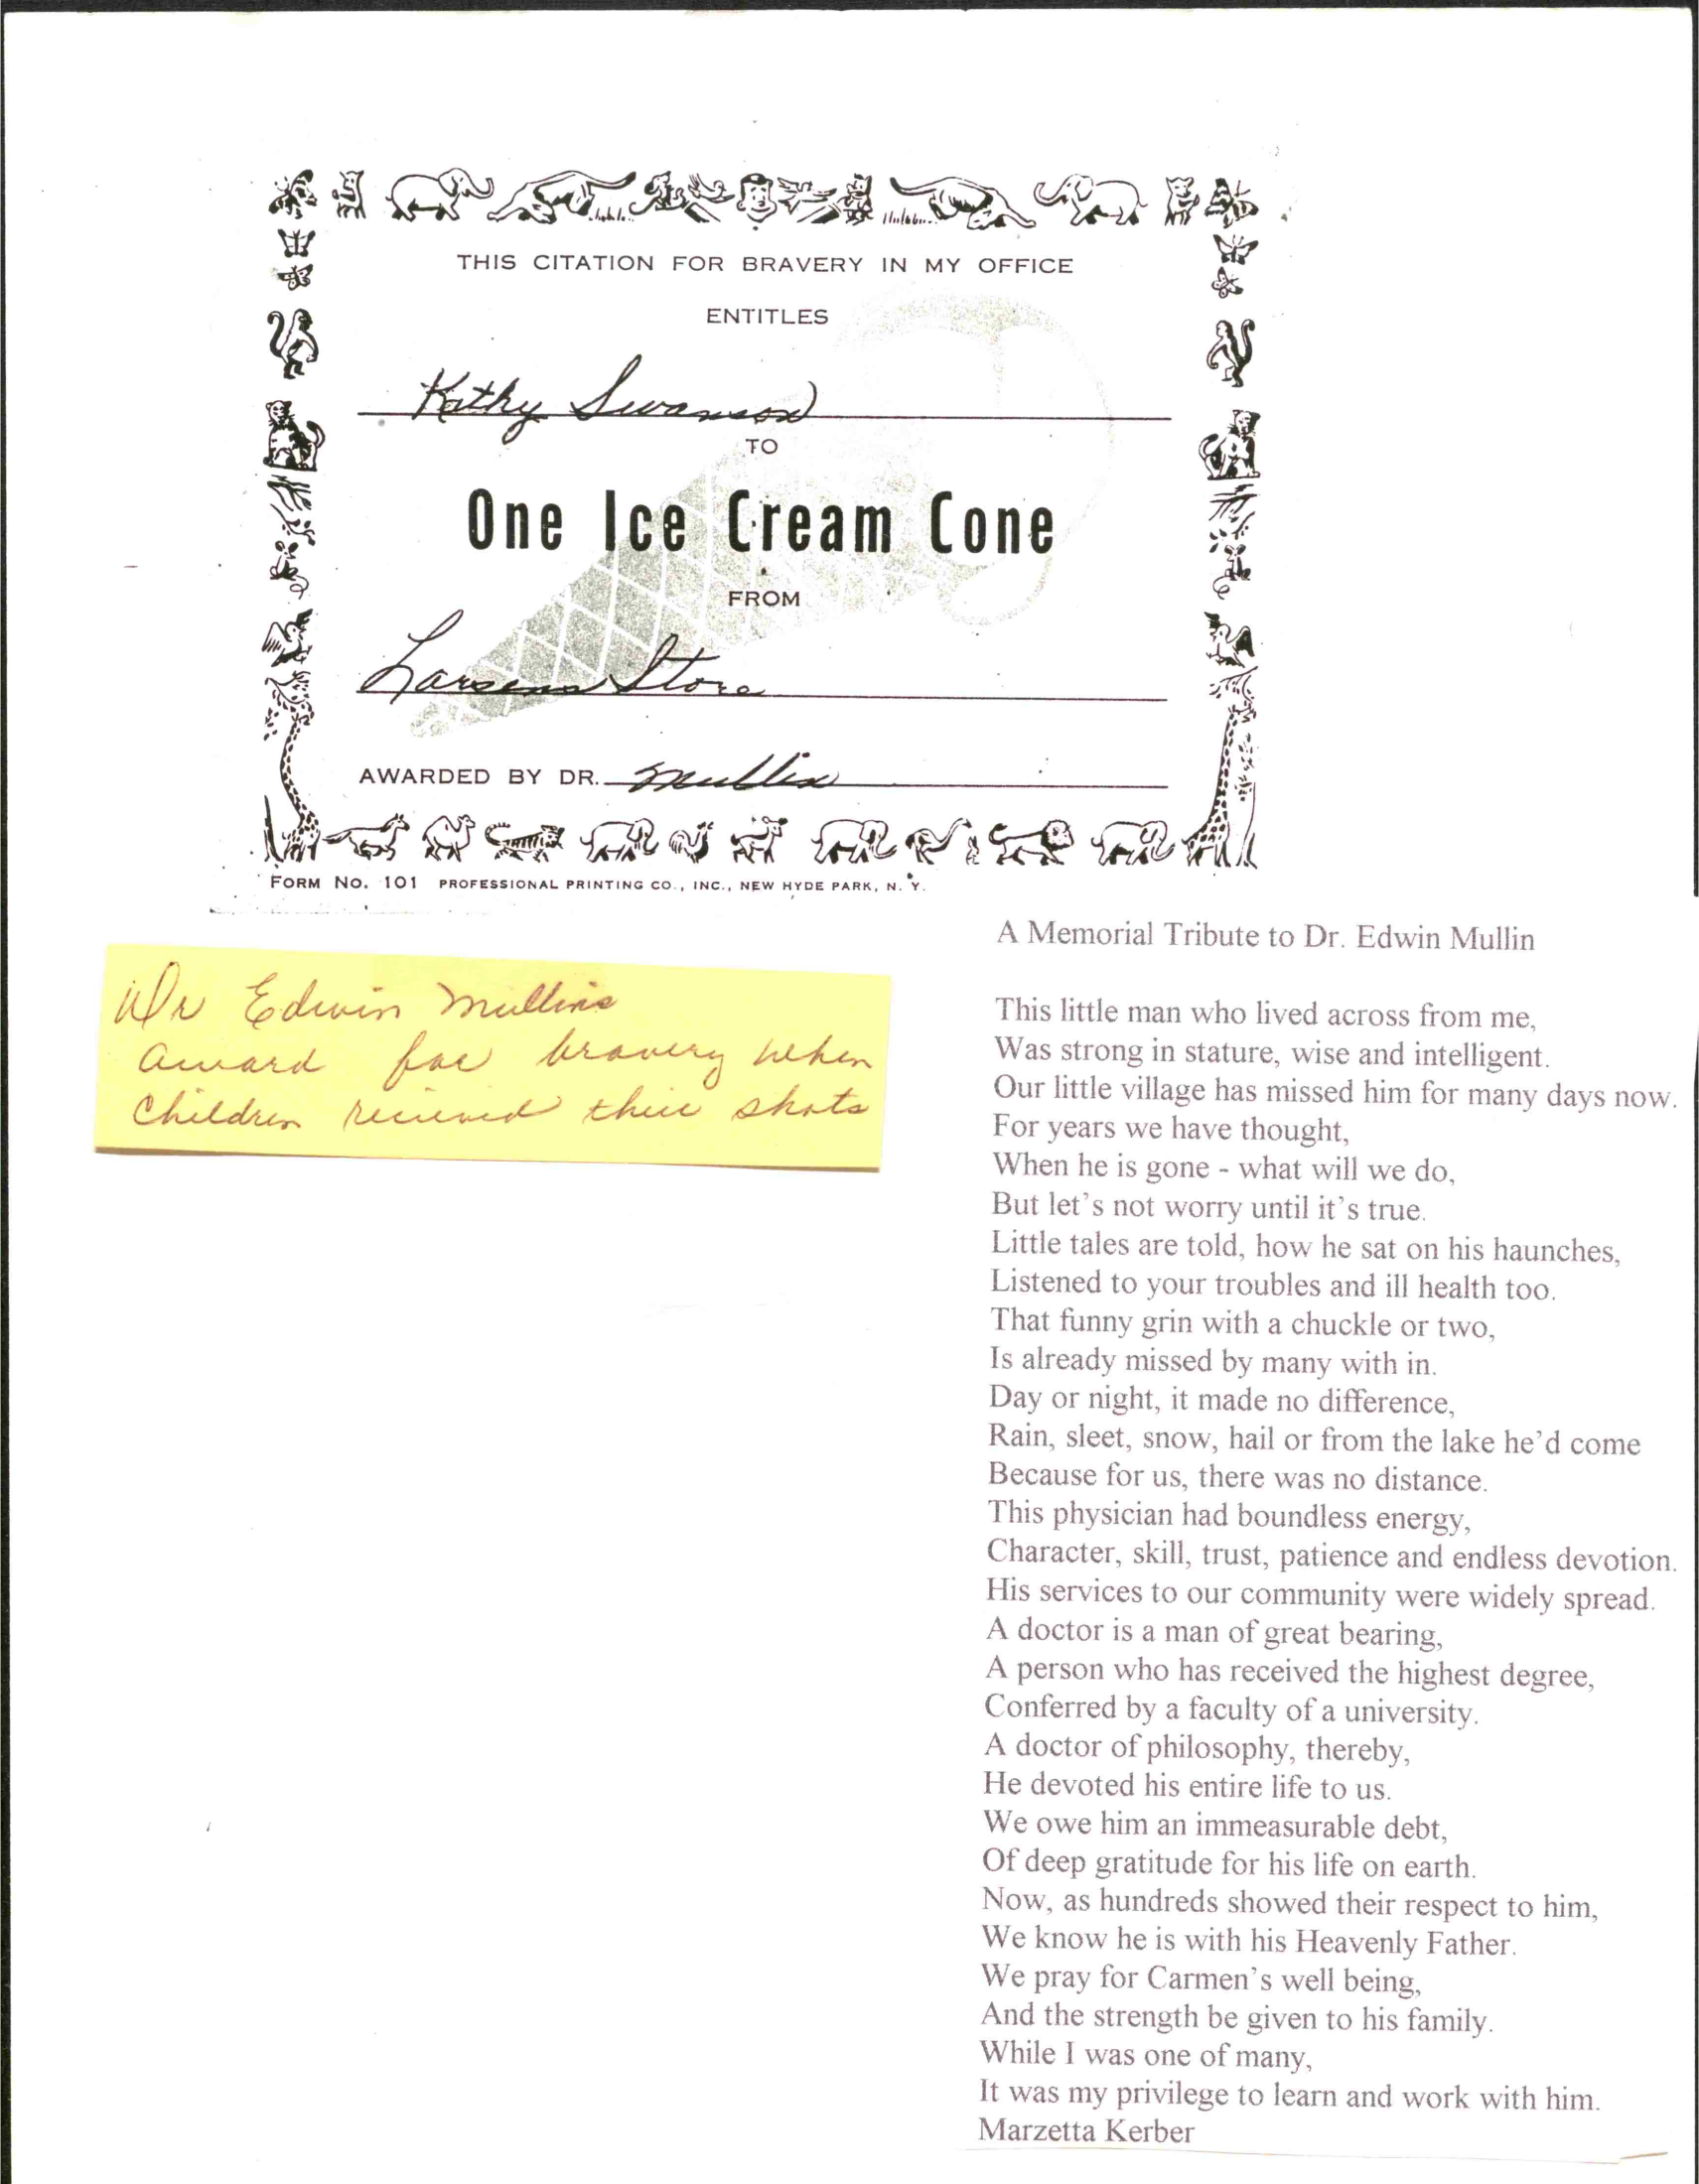 THIS CITATION FOR BRAVERY IN MY OFFICE
ENTITLES
Kathy Swanson
TO
One Ice Cream Cone
FROM
Larsens Store
AWARDED BY DR. Mullin
FORM NO. 101 PROFESSIONAL PRINTING CO., INC., NEW HYDE PARK, N. Y.
Dr Edwin Mullins
award for bravery when
children recieved their shots
A Memorial Tribute to Dr. Edwin Mullin
This little man who lived across from me,
Was strong in stature, wise and intelligent.
Our little village has missed him for many days now.
For years we have thought,
When he is gone - what will we do,
But let's not worry until it's true.
Little tales are told, how he sat on his haunches,
Listened to your troubles and ill health too.
That funny grin with a chuckle or two,
Is already missed by many with in.
Day or night, it made no difference,
Rain, sleet, snow, hail or from the lake he'd come
Because for us, there was no distance.
This physician had boundless energy,
Character, skill, trust, patience and endless devotion.
His services to our community were widely spread.
A doctor is a man of great bearing,
A person who has received the highest degree,
Conferred by a faculty of a university.
A doctor of philosophy, thereby,
He devoted his entire life to us.
We owe him an immeasurable debt,
Of deep gratitude for his life on earth.
Now, as hundreds showed their respect to him,
We know he is with his Heavenly Father.
We pray for Carmen's well being,
And the strength be given to his family.
While I was one of many,
It was my privilege to learn and work with him.
Marzetta Kerber